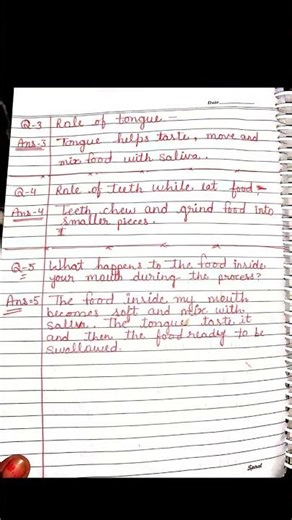 Date
Q-3 Role of tongue -
Ans-3 Tongue helps taste, move and
mix food with saliva.
Q-4 Role of teeth while eat food -
Ans-4 Teeth chew and grind food into
smaller pieces.
Q-5 What happens to the food inside
your mouth during the process?
Ans-5 The food inside my mouth
becomes soft and mix with
saliva. The tongue taste it
and then the food ready to be
swallowed.
Spiral